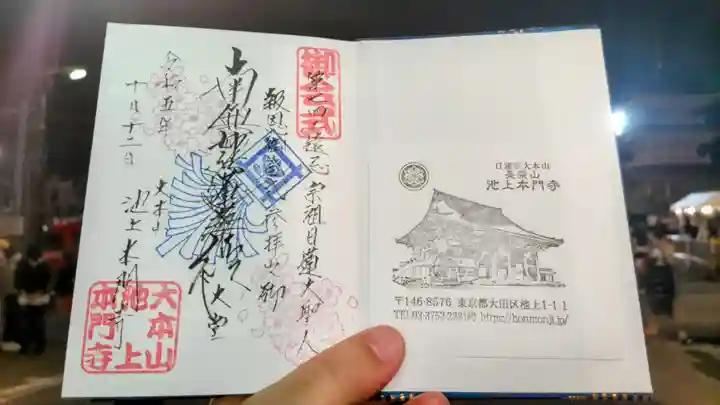 御会式
第七四二遠忌 宗祖日蓮大聖人
南無妙法蓮華経
大堂
令和五年
十月十二日
大本山
池上本門寺
大本山
池上
本門寺
日蓮宗大本山
長栄山
池上本門寺
〒146-8576 東京都大田区池上1-1-1
https://honmonji.jp/